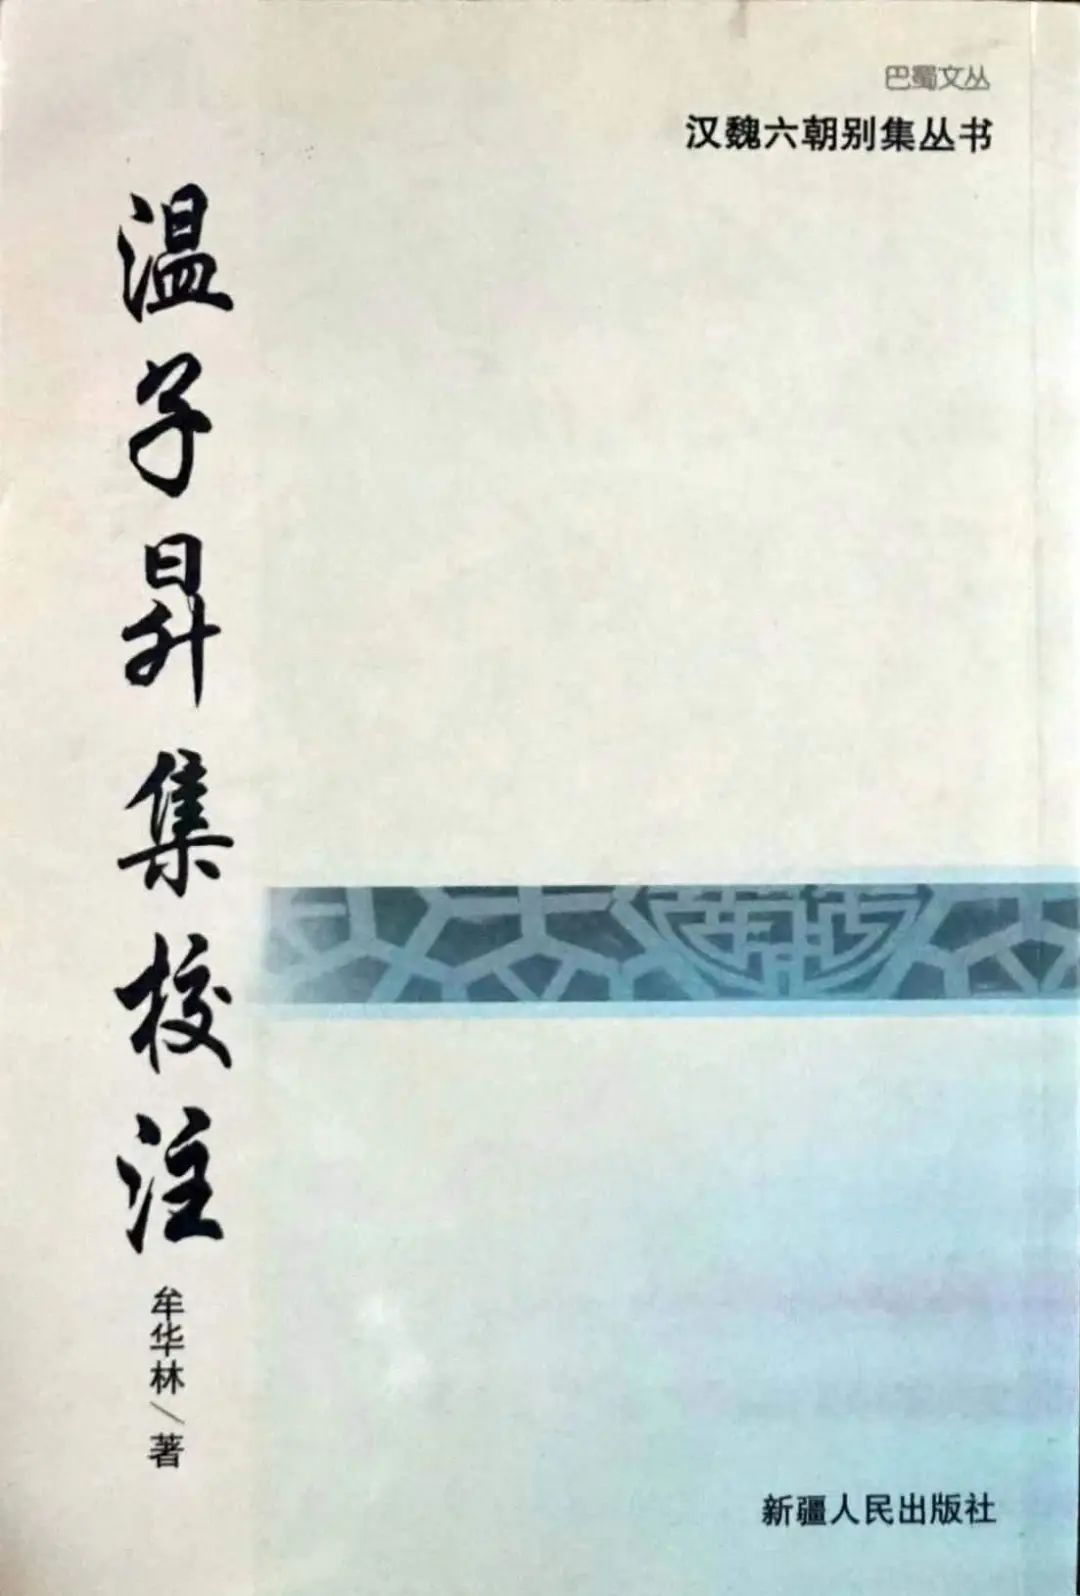 巴蜀文丛
汉魏六朝别集丛书
温子昇集校注
牟华林／著
新疆人民出版社